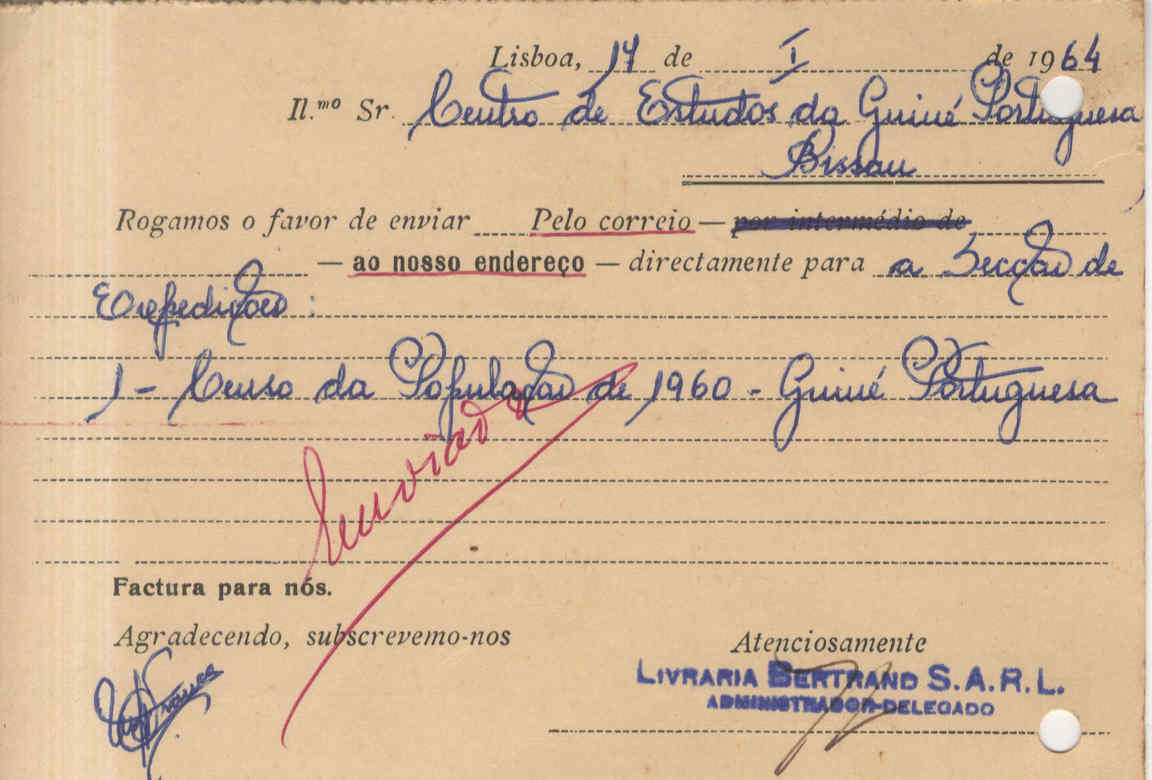 Lisboa, 17 de I de 1964
Il.mo Sr. Centro de Estudos da Guiné Portuguesa
Bissau
Rogamos o favor de enviar Pelo correio — por intermédio de
— ao nosso endereço — directamente para a Secção de
Expedição:
1 - Censo da População de 1960 - Guiné Portuguesa
Enviado
Factura para nós.
Agradecendo, subscrevemo-nos
Atenciosamente
LIVRARIA BERTRAND S.A.R.L.
ADMINISTRADOR-DELEGADO